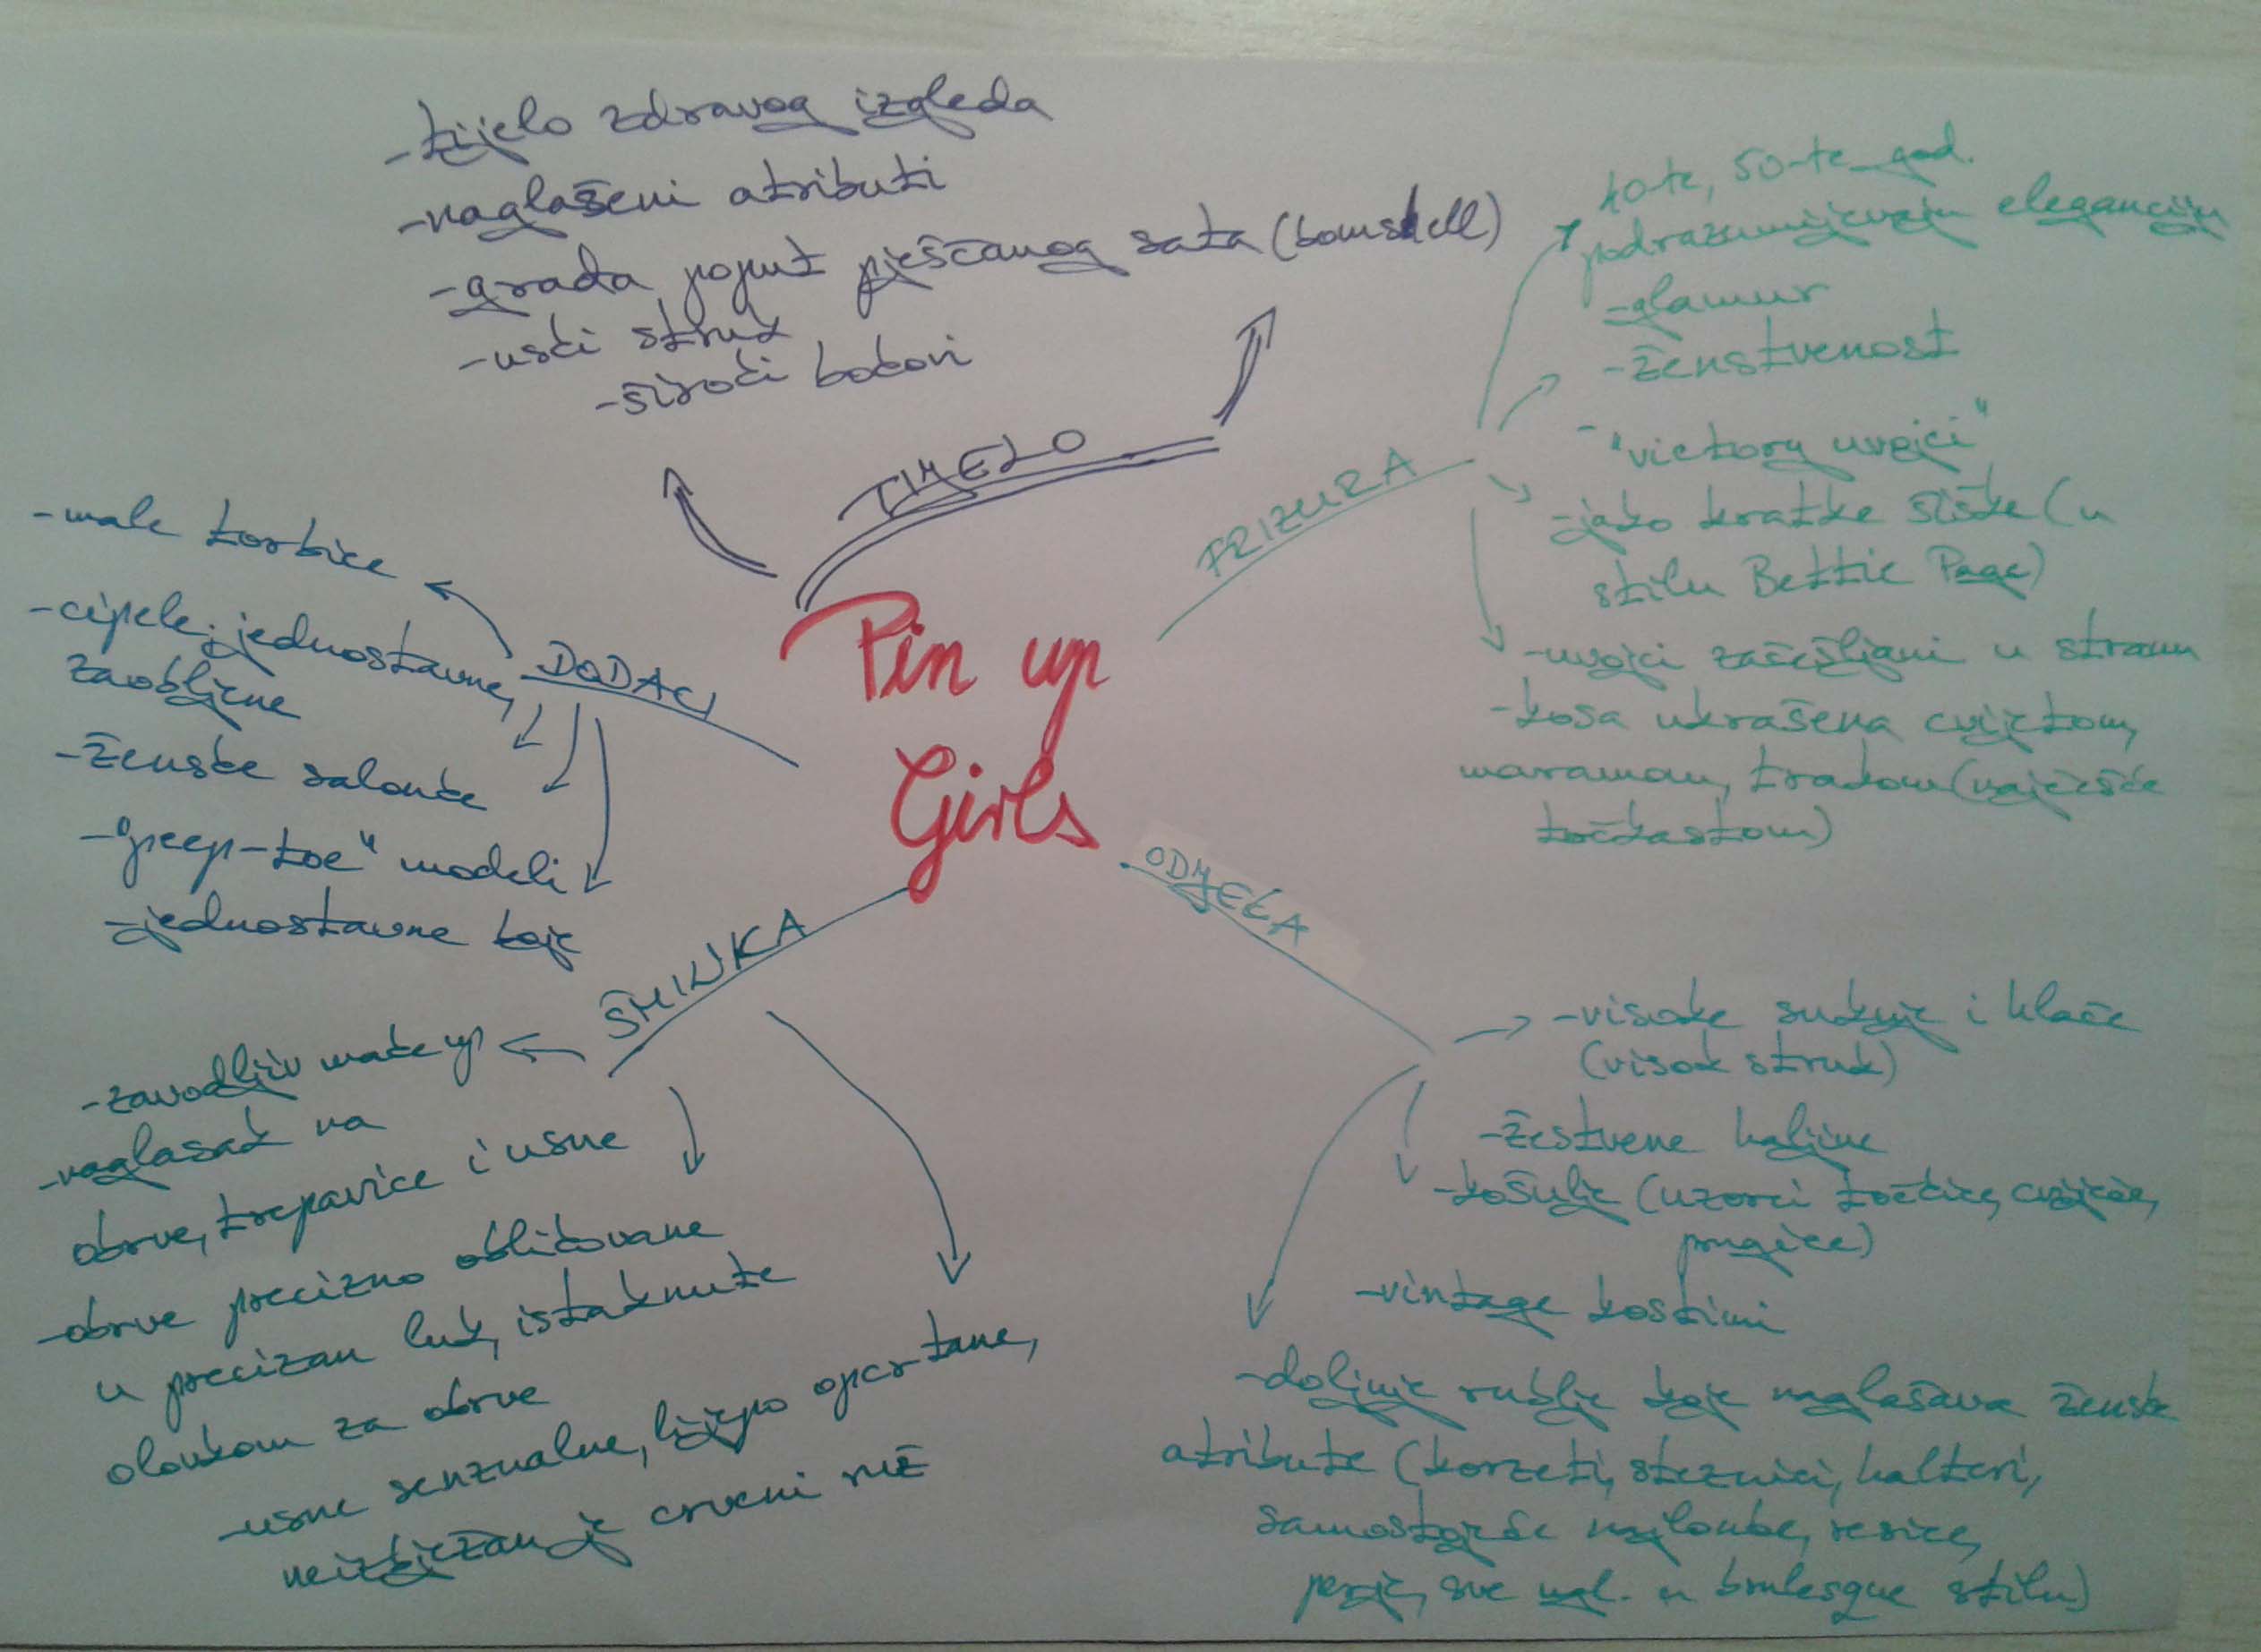 -tijelo zdravog izgleda
-naglašeni atributi
-građa poput pješčanog sata (bomshell)
-uski struk
-široki bokovi
TIJELO
FRIZURA
40-te, 50-te god.
podrazumijevaju eleganciju
-glamur
-ženstvenost
-"victory uvojci"
-jako kratke šiške (u
stilu Bettie Page)
-uvojci začešljani u stranu
-kosa ukrašena cvijetom,
maramom, trakom (najčešće
točkastom)
Pin up
Girls
DODACI
-male torbice
-cipele: jednostavne,
zaobljene
-ženske salonke
-"peep-toe" modeli
-jednostavne boje
ŠMINKA
-zavodljiv make up
-naglasak na
obrve, trepavice i usne
-obrve precizno oblikovane
u precizan luk, istaknute
olovkom za obrve
-usne senzualne, lijepo opcrtane,
neizbježan je crveni ruž
ODJEĆA
-visoke suknje i hlače
(visok struk)
-žestvene haljine
-košulje (uzorci točkice, cvijeće,
prugice)
-vintage kostimi
-dolinje rublje koje naglašava ženske
atribute (korzeti, steznici, halteri,
samostojeće najlonke, resice,
perje, sve ugl. u brulesque stilu)